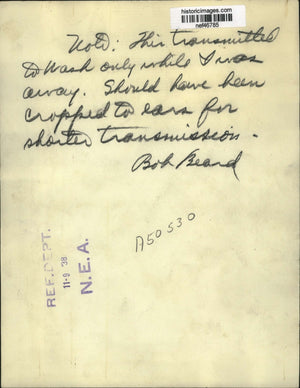 historicimages.com
nef46785
Note: This transmitted
to Wash only while I was
away. Should have been
cropped to ears for
shorter transmission.
Bob Beard
A50530
REF. DEPT.
11-9 38
N.E.A.